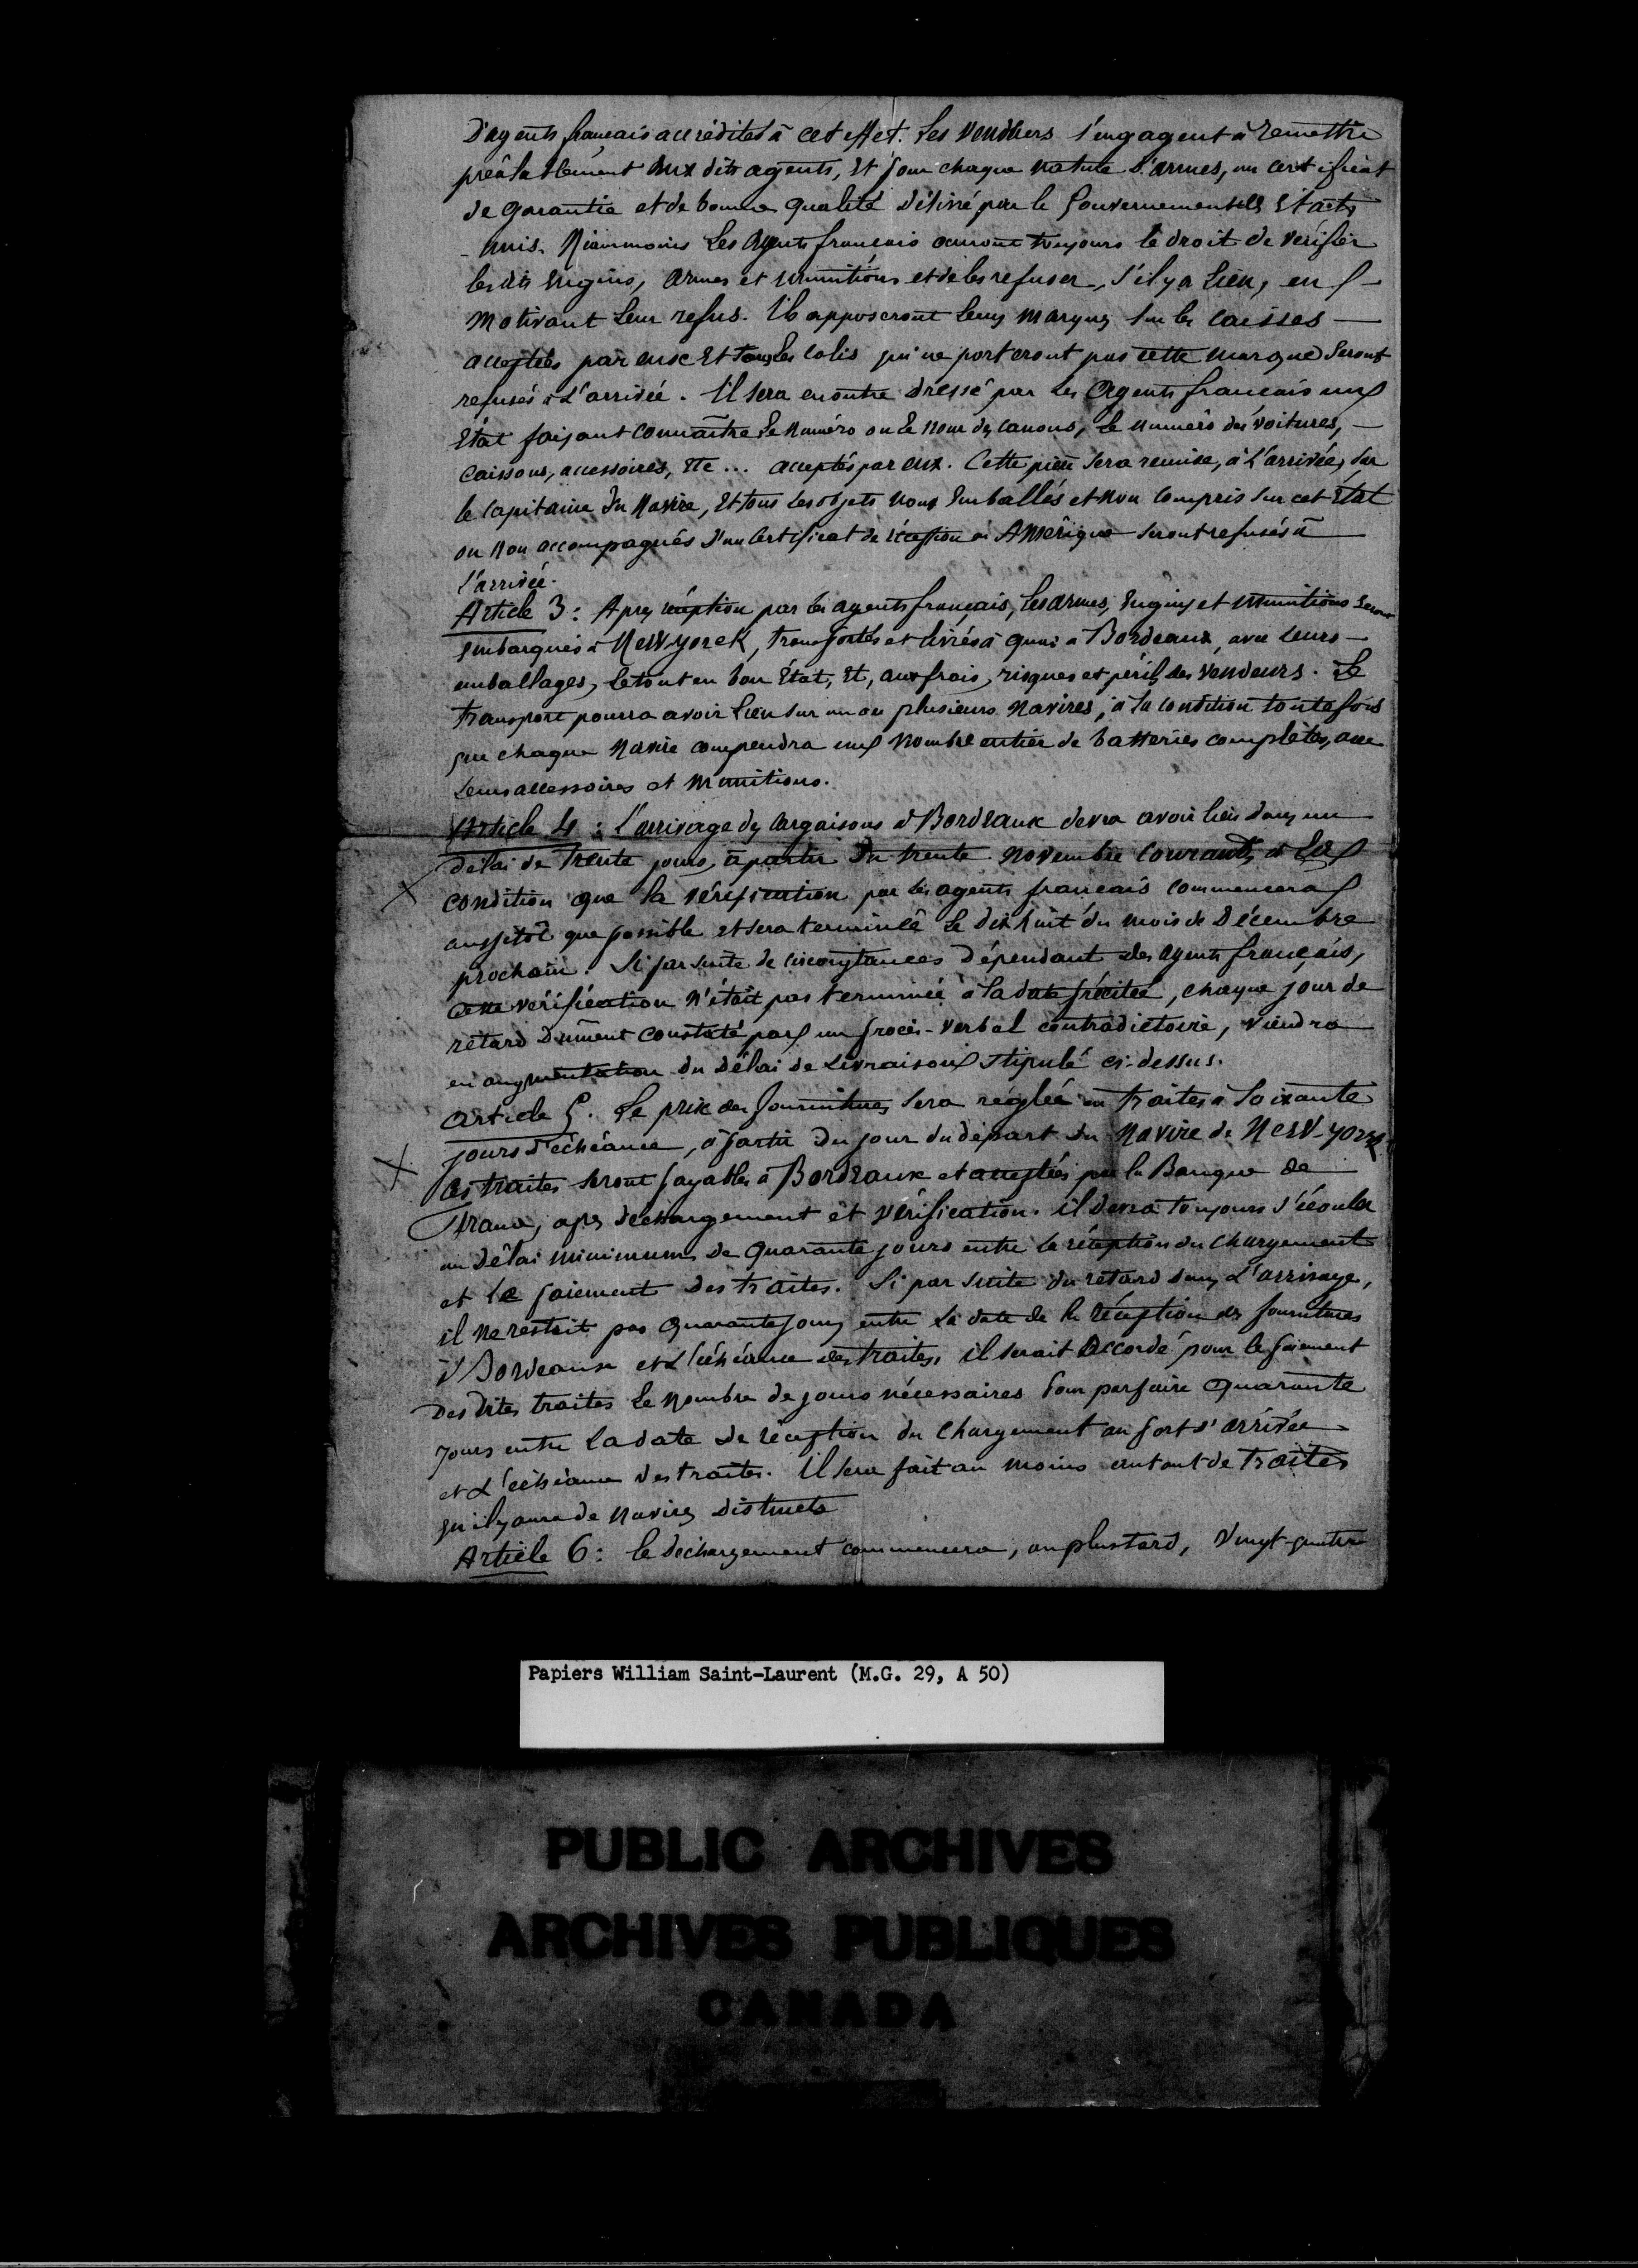 D'agents français accrédités à cet effet. Les Vendeurs s'engagent à remettre
préalablement aux dits agents, et pour chaque nature d'armes, un certificat
de garantie et de bonne qualité délivré par le Gouvernement des Etats
-unis. Néanmoins Les Agents français auront toujours le droit de vérifier
les dits Engins, armes et munitions et de les refuser, s'il y a Lieu, en
motivant Leur refus. Ils apposeront leurs marques sur les caisses
acceptées par eux et tous les colis qui ne porteront pas cette marque seront
refusés à L'arrivée. Il sera en outre dressé par les Agents français un
Etat faisant connaître Le numéro ou le nom des canons, le numéro des voitures,
caissons, accessoires, Etc... acceptés par eux. Cette pièce sera remise, à L'arrivée, par
le Capitaine du Navire, Et tous les objets non Emballés et non compris sur cet Etat
ou non accompagnés d'un Certificat de réception en Amérique seront refusés à
l'arrivée.
Article 3: Après réception par les agents français, les armes, Engins et munitions seront
Embarqués à New-yorck, transportés et livrés à quai à Bordeaux, avec leurs
emballages, le tout en bon Etat, Et, aux frais, risques et périls des Vendeurs. Le
transport pourra avoir Lieu sur un ou plusieurs navires, à la condition toutefois
que chaque Navire comprendra un nombre entier de batteries complètes, avec
Leurs accessoires et munitions.
Article 4: L'arrivage des Cargaisons à Bordeaux devra avoir lieu dans un
délai de Trente jours, à partir du trente novembre courant, à la
condition que la vérification par les agents français commencera
aussitôt que possible et sera terminée Le dix huit du mois de Décembre
prochain. Si par suite de circonstances dépendant des agents français,
cette vérification n'était pas terminée à la date précitée, chaque jour de
retard Dûment constaté par un procès-verbal contradictoire, viendra
en augmentation du délai de Livraison stipulé ci-dessus.
Article 5. Le prix des fournitures sera réglée en traites à Soixante
jours d'échéance, à partir du jour du départ du Navire de New-york
Ces traites seront payables à Bordeaux et acceptées par la Banque de
France, après déchargement et vérification. il devra toujours s'écouler
un Délai minimum de Quarante jours entre la réception du Chargement
et le paiement des traites. Si par suite du retard dans L'arrivage,
il ne restait pas Quarante jours entre La date de la réception des fournitures
à Bordeaux et L'échéance des traites, il serait accordé pour le paiement
Des dites traites Le nombre de jours nécessaires pour parfaire Quarante
Jours entre La date de réception du Chargement au port d'arrivée
et L'échéance des traites. Il sera fait au moins autant de traites
qu'il y aura de navires distincts
Article 6: le déchargement commencera, au plus tard, Vingt-quatre
Papiers William Saint-Laurent (M.G. 29, A 50)
PUBLIC ARCHIVES
ARCHIVES PUBLIQUES
CANADA